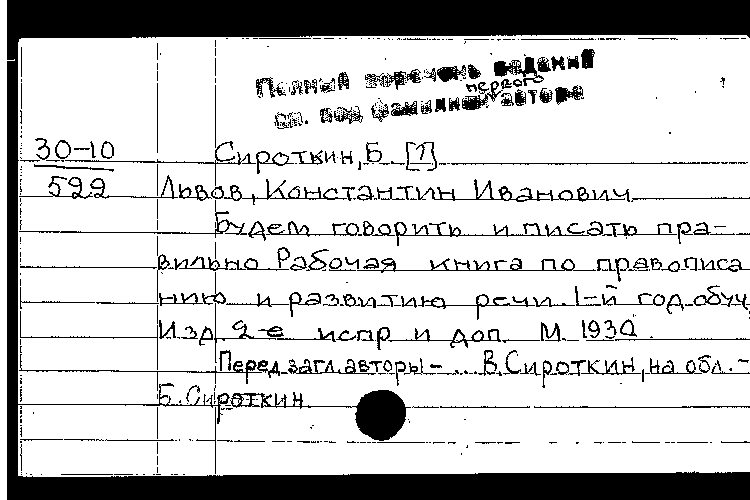 Полный перечень изданий
первого
см. под фамилией автора
30-10
522
Сироткин, Б. [1]
Львов, Константин Иванович
Будем говорить и писать пра-
вильно Рабочая книга по правописа
нию и развитию речи. 1-й год обуч,
Изд. 2-е испр и доп. М. 1930.
Перед загл. авторы - ... В. Сироткин, на обл. -
Б. Сироткин